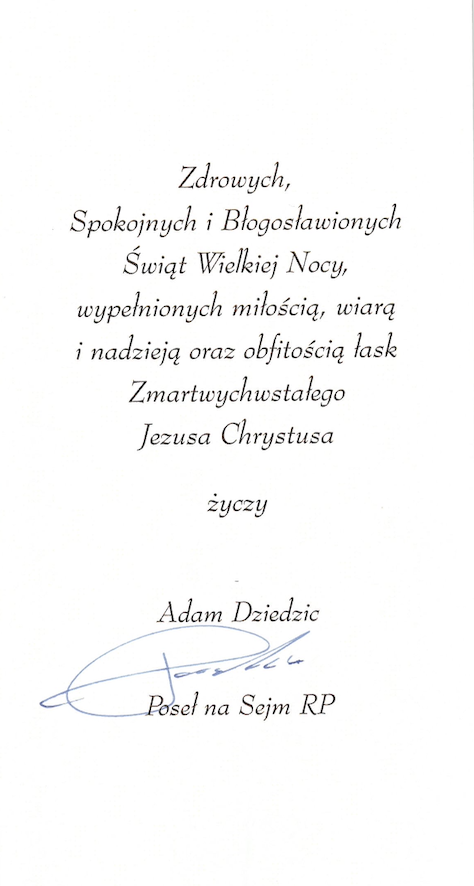 Zdrowych,
Spokojnych i Błogosławionych
Świąt Wielkiej Nocy,
wypełnionych miłością, wiarą
i nadzieją oraz obfitością łask
Zmartwychwstałego
Jezusa Chrystusa
życzy
Adam Dziedzic
Poseł na Sejm RP